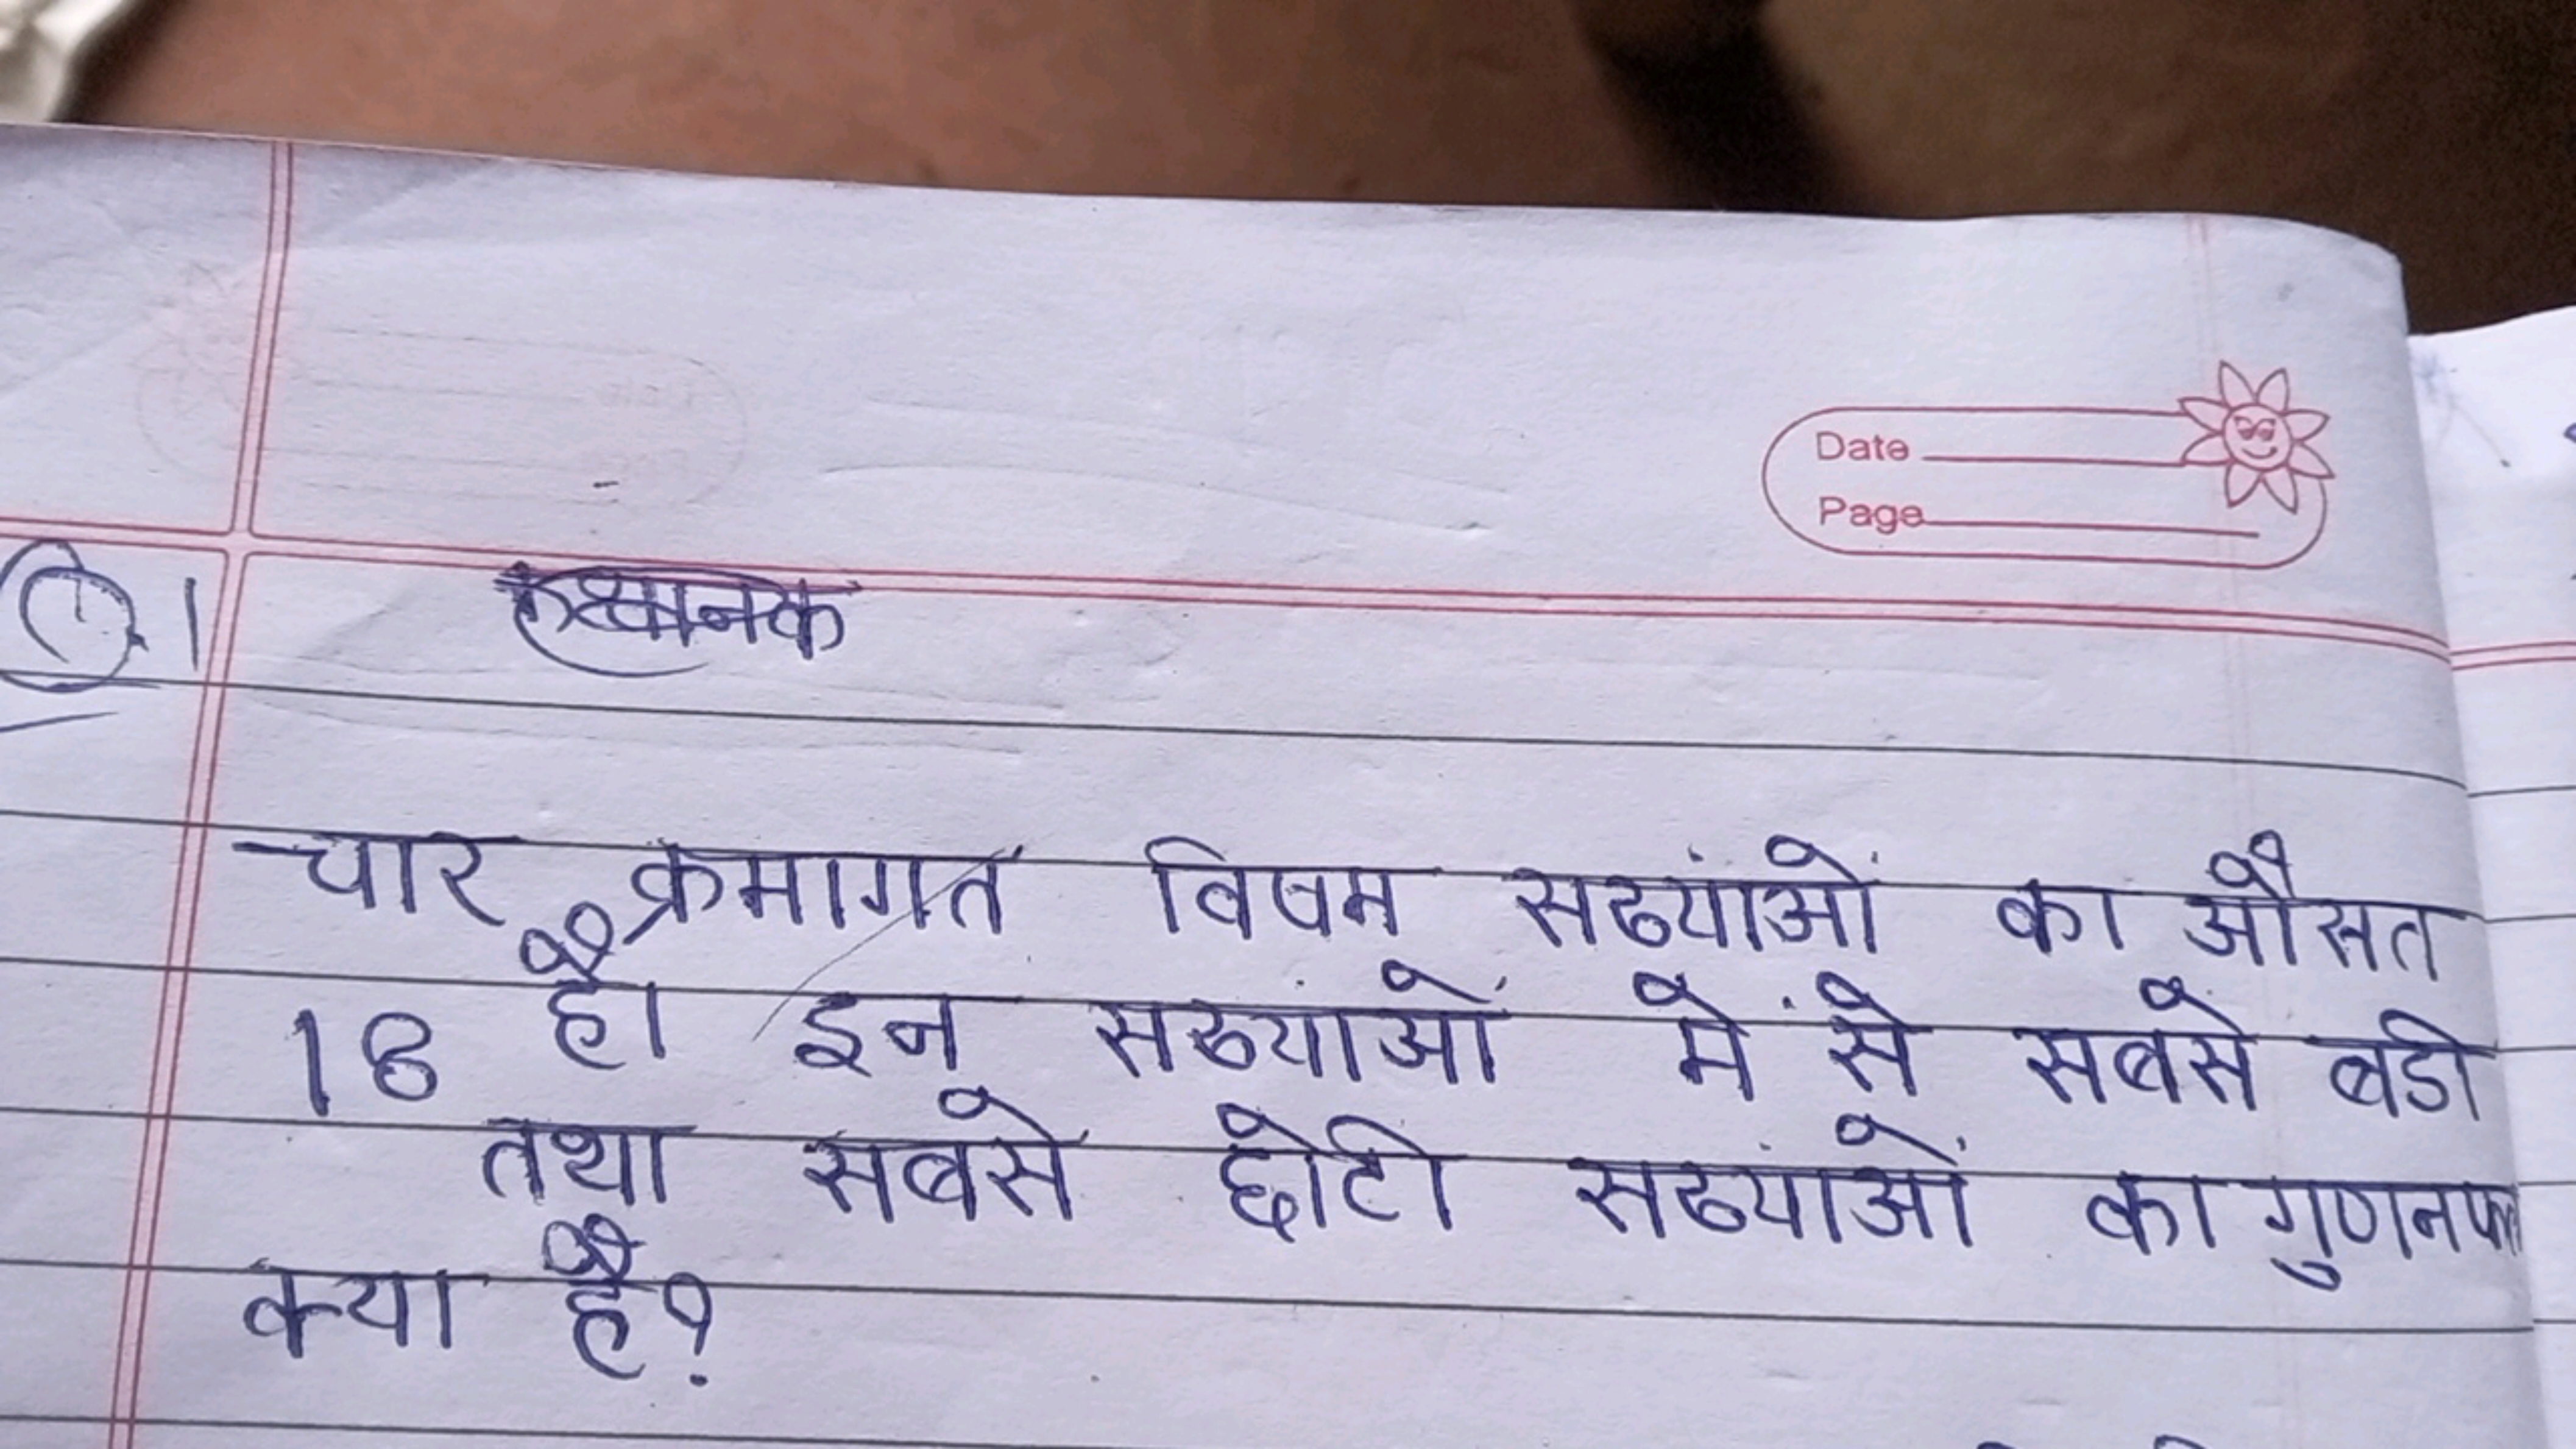 Date
Page
Q.1
चार क्रमागत विषम सख्यांओं का औसत
18 है। इन सख्यांओं में से सबसे बडी
तथा सबसे छोटी सख्यांओं का गुणनफल
क्या है?